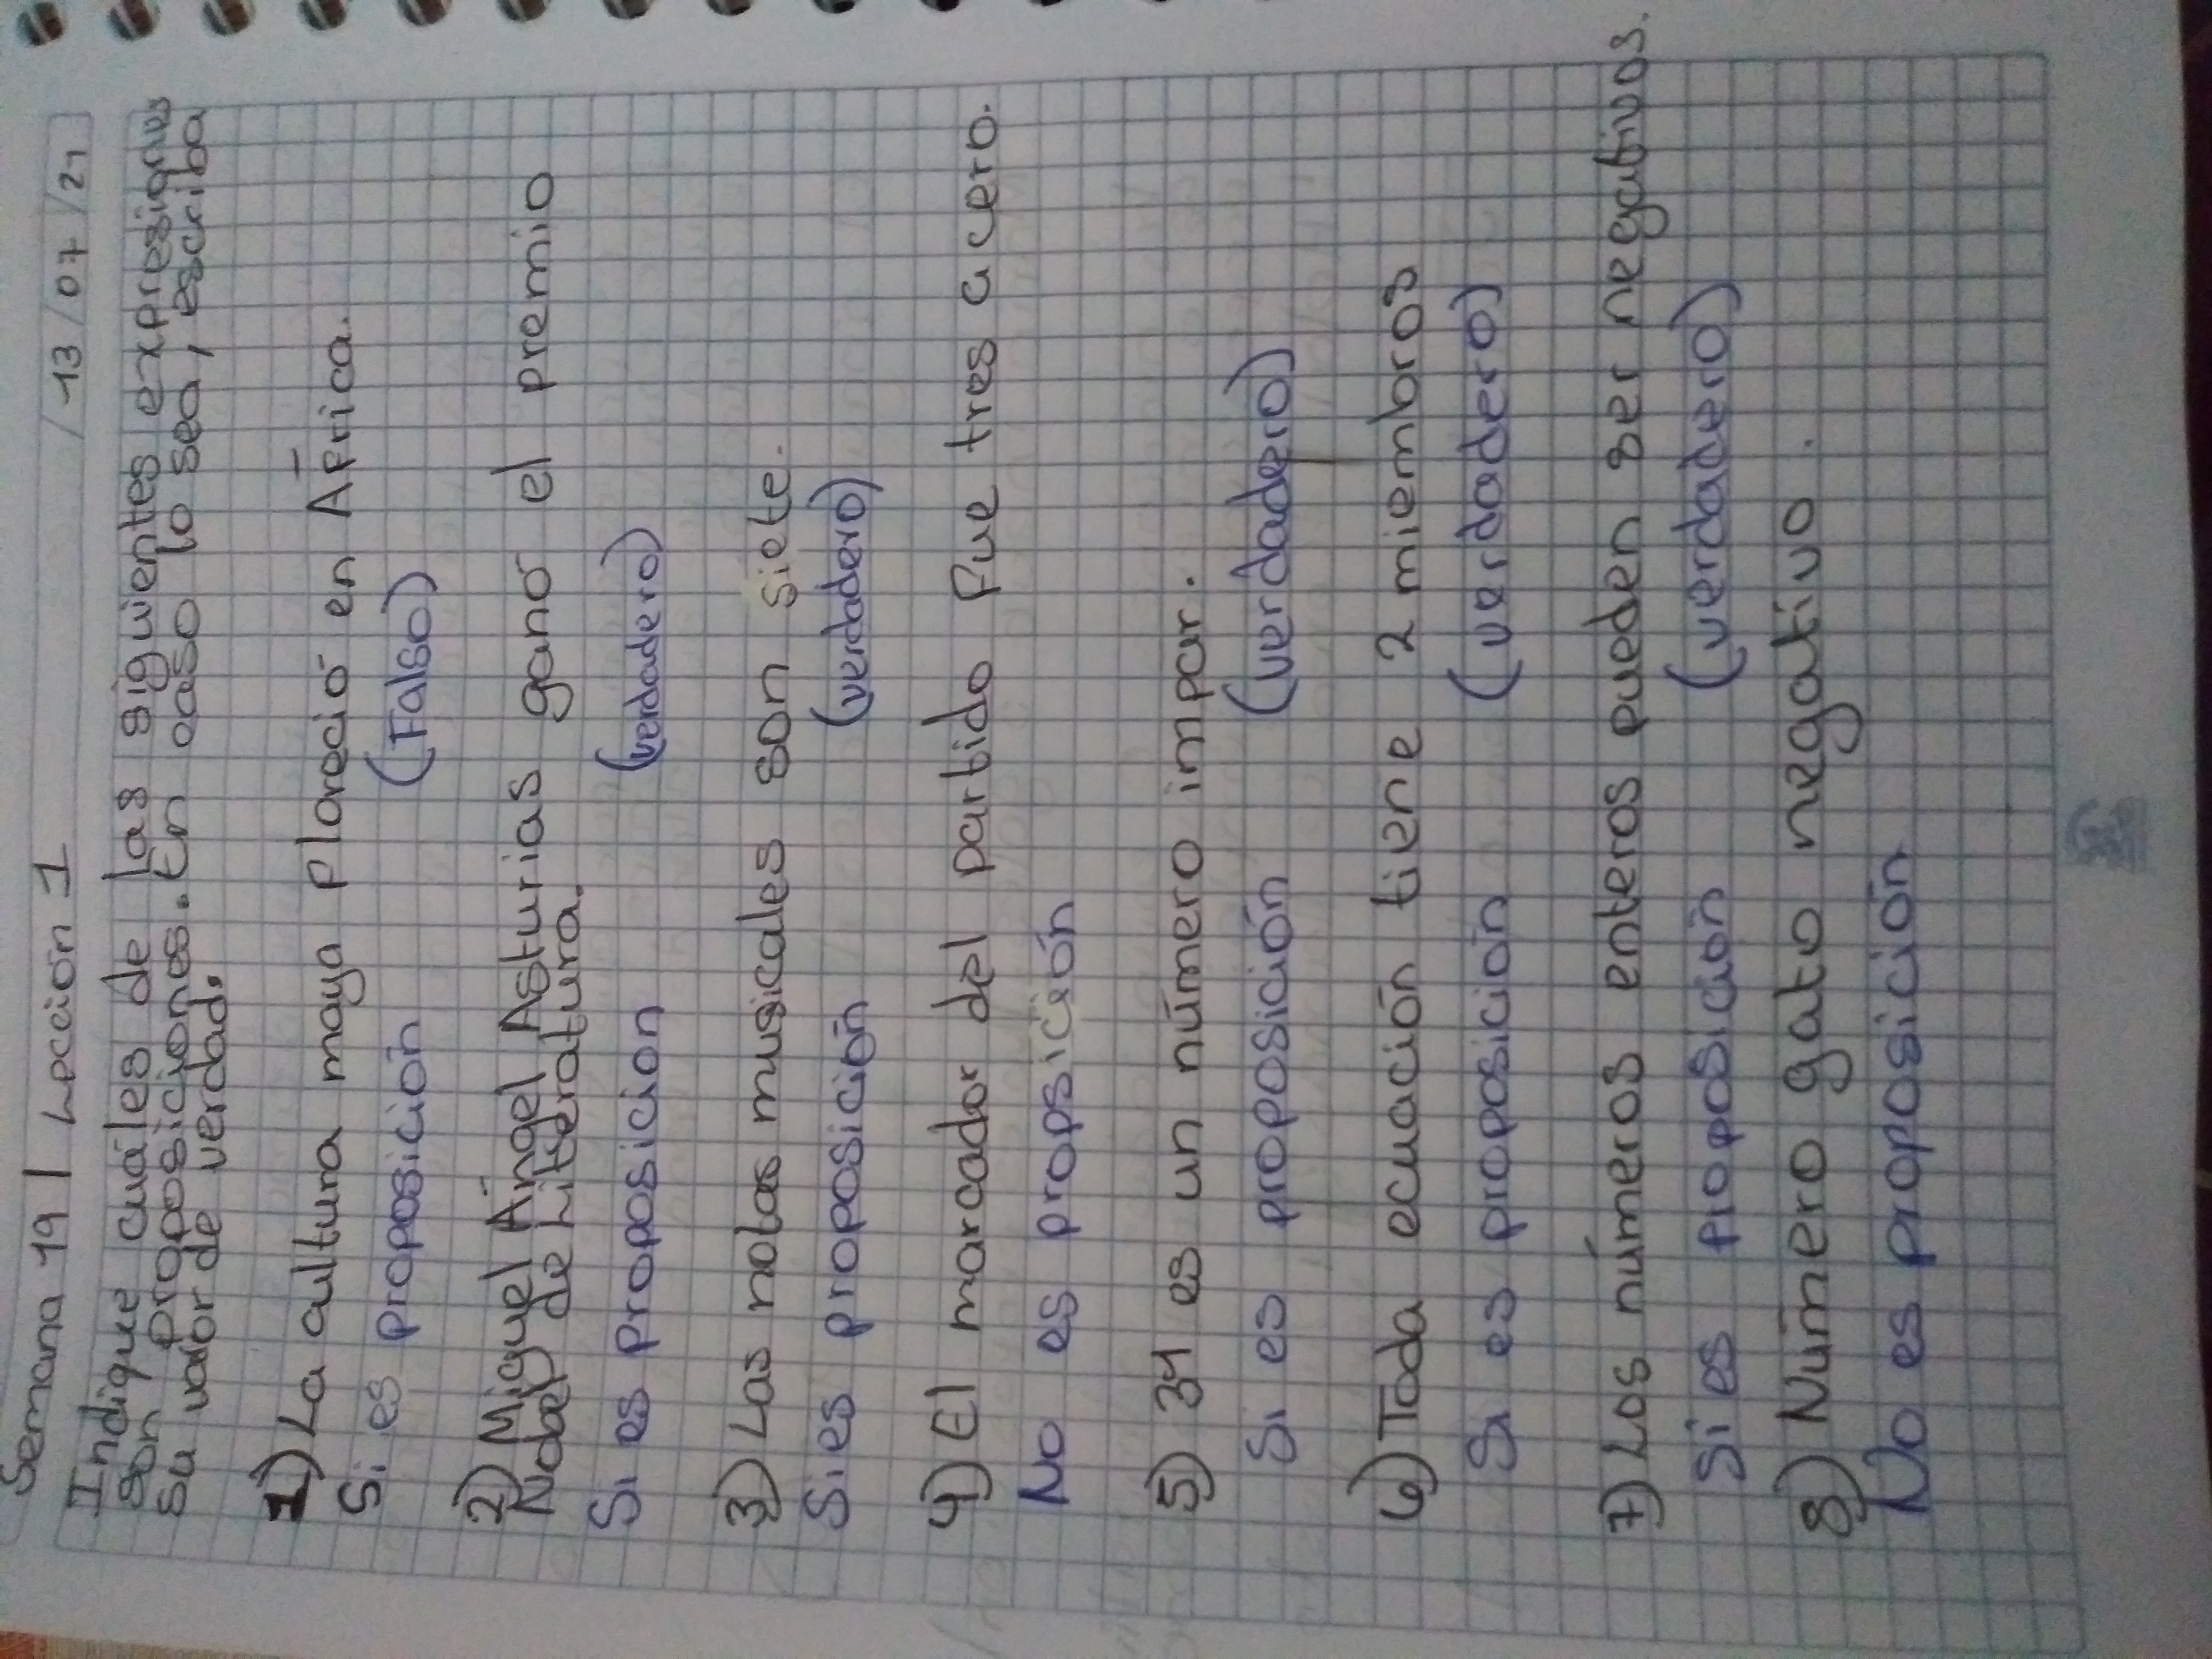 Semana 19 | Lección 1 / 13 / 07 / 21
Indique cuáles de las siguientes expresiones
son proposiciones. En caso lo sea, escriba
su valor de verdad.
1) La cultura maya ploreció en África.
Si es proposición (Falso)
2) Miguel Ángel Asturias ganó el premio
Nobel de Literatura.
Si es proposicion (verdadero)
3) Las notas musicales son siete.
Si es proposición (verdadero)
4) El marcador del partido fue tres a cero.
No es propsición
5) 31 es un número impar.
Si es proposición (verdadero)
6) Toda ecuación tiene 2 miembros
Si es proposición (verdadero)
7) Los números enteros pueden ser negativos.
Si es proposición (verdadero)
8) Número gato negativo.
No es proposición